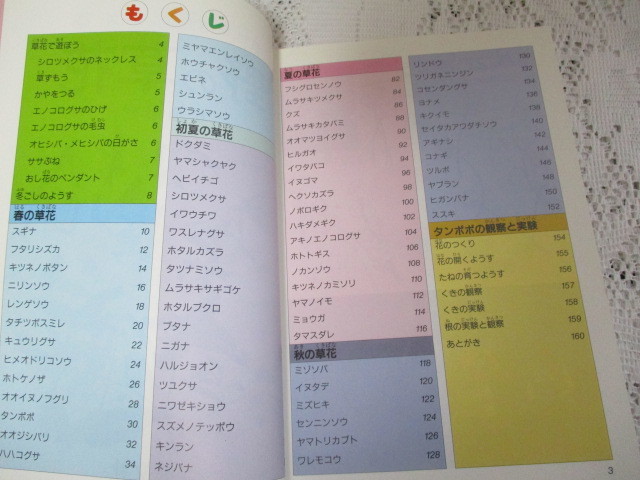 もくじ
草花で遊ぼう 4
シロツメクサのネックレス 4
草ずもう 5
かやをつる 5
エノコログサのひげ 6
エノコログサの毛虫 6
オヒシバ・メヒシバの日がさ 6
ササぶね 7
おし花のペンダント 7
冬ごしのようす 8
春の草花
スギナ 10
フタリシズカ 12
キツネノボタン 14
ニリンソウ 16
レンゲソウ 18
タチツボスミレ 20
キュウリグサ 22
ヒメオドリコソウ 24
ホトケノザ 26
オオイヌノフグリ 28
タンポポ 30
オオジシバリ 32
ハハコグサ 34
ミヤマエンレイソウ
ホウチャクソウ
エビネ
シュンラン
ウラシマソウ
初夏の草花
ドクダミ
ヤマシャクヤク
ヘビイチゴ
シロツメクサ
イワウチワ
ワスレナグサ
ホタルカズラ
タツナミソウ
ムラサキサギゴケ
ホタルブクロ
ブタナ
ニガナ
ハルジョオン
ツユクサ
ニワゼキショウ
スズメノテッポウ
キンラン
ネジバナ
夏の草花
フシグロセンノウ 82
ムラサキツメクサ 84
クズ 86
ムラサキカタバミ 88
オオマツヨイグサ 90
ヒルガオ 92
イワタバコ 94
イヌゴマ 96
ヘクソカズラ 98
ノボロギク 100
ハキダメギク 102
アキノエノコログサ 104
ホトトギス 106
ノカンゾウ 108
キツネノカミソリ 110
ヤマノイモ 112
ミョウガ 114
タマスダレ 116
秋の草花
ミゾソバ 118
イヌタデ 120
ミズヒキ 122
センニンソウ 124
ヤマトリカブト 126
ワレモコウ 128
リンドウ 130
ツリガネニンジン 132
コセンダングサ 134
ヨメナ 136
キクイモ 138
セイタカアワダチソウ 140
アキギシ 142
コナギ 144
ツルボ 146
ヤブラン 148
ヒガンバナ 150
ススキ 152
タンポポの観察と実験
花のつくり 154
花の開くようす 155
たねの育つようす 156
くきの観察 157
くきの実験 158
根の実験と観察 159
あとがき 160
3